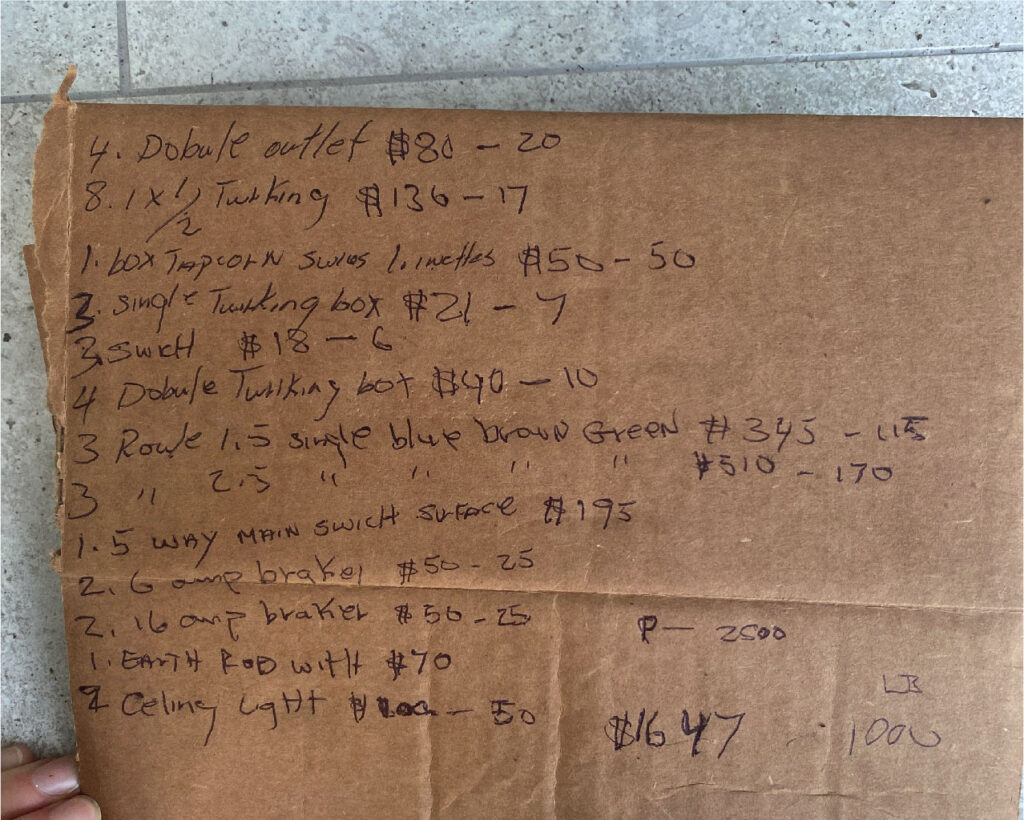 4. Dobule outlet $80 - 20
8. 1 x 1/2 Turking $136 - 17
1. box TAPCORN 1. $50 - 50
3. single Turking box $21 - 7
3. swicH $18 - 6
4 Dobule Turiking box $40 - 10
3 Roule 1.5 single blue brown GreeN $345 - 115
3 " 2.5 " " " " $510 - 170
1. 5 WAY MAIN SWICH SURFACE $195
2. 6 amp braker $50 - 25
2. 16 amp braker $50 - 25
P - 2500
1. EARTH ROD WITH $70
LB
2 Celing LigHT - 50
$1647
1000